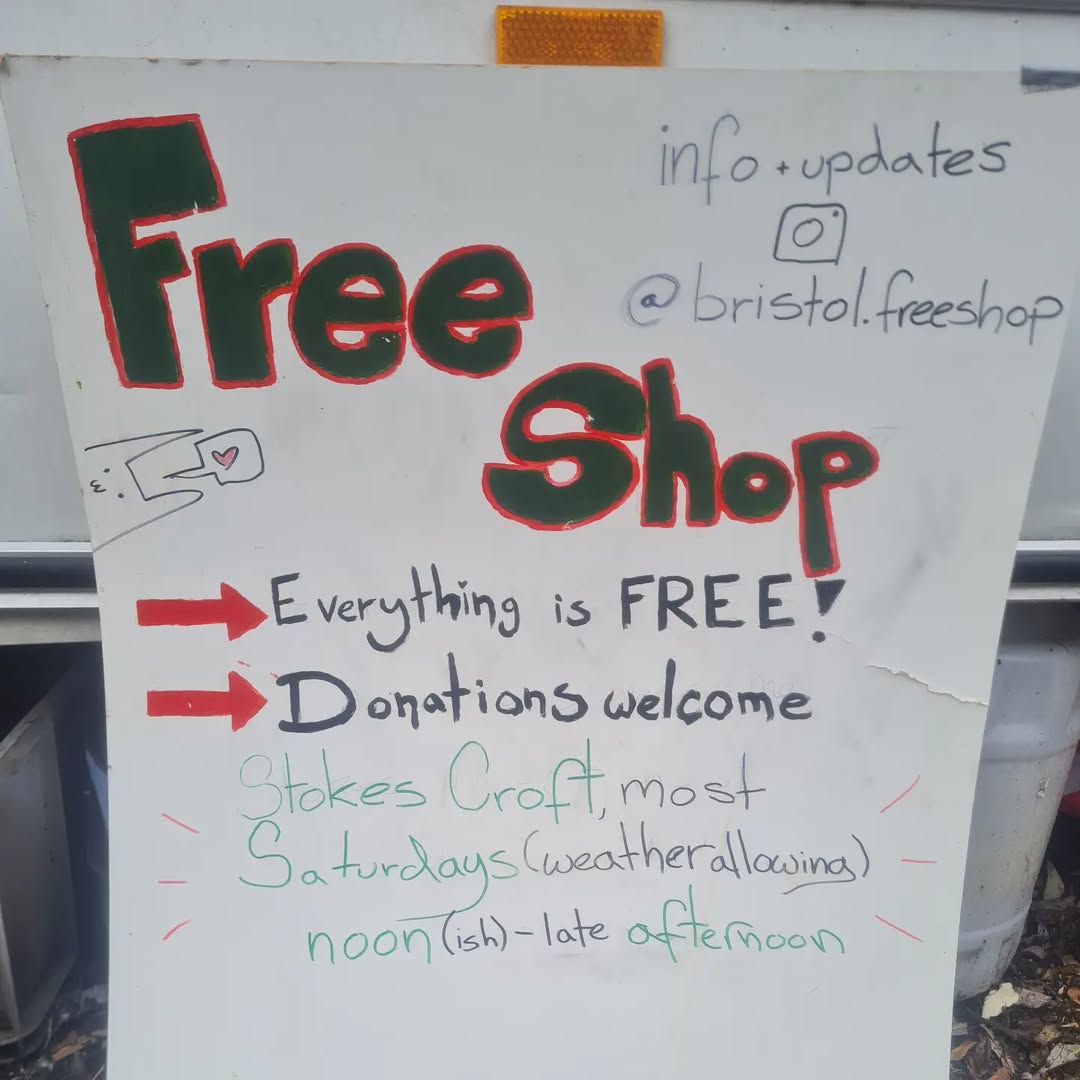 Free
Shop
info + updates
@bristol.freeshop
Everything is FREE!
Donations welcome
Stokes Croft, most
Saturdays (weather allowing)
noon (ish) - late afternoon